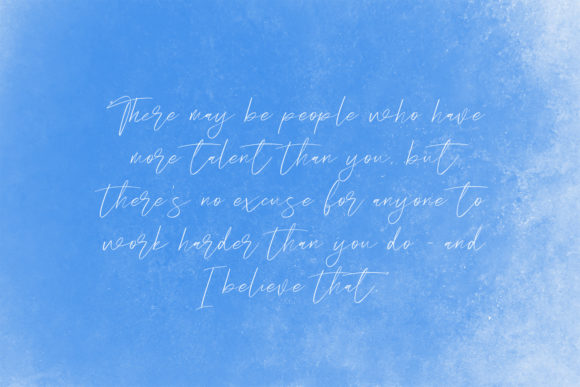 "There may be people who have
more talent than you, but
there's no excuse for anyone to
work harder than you do - and
I believe that.